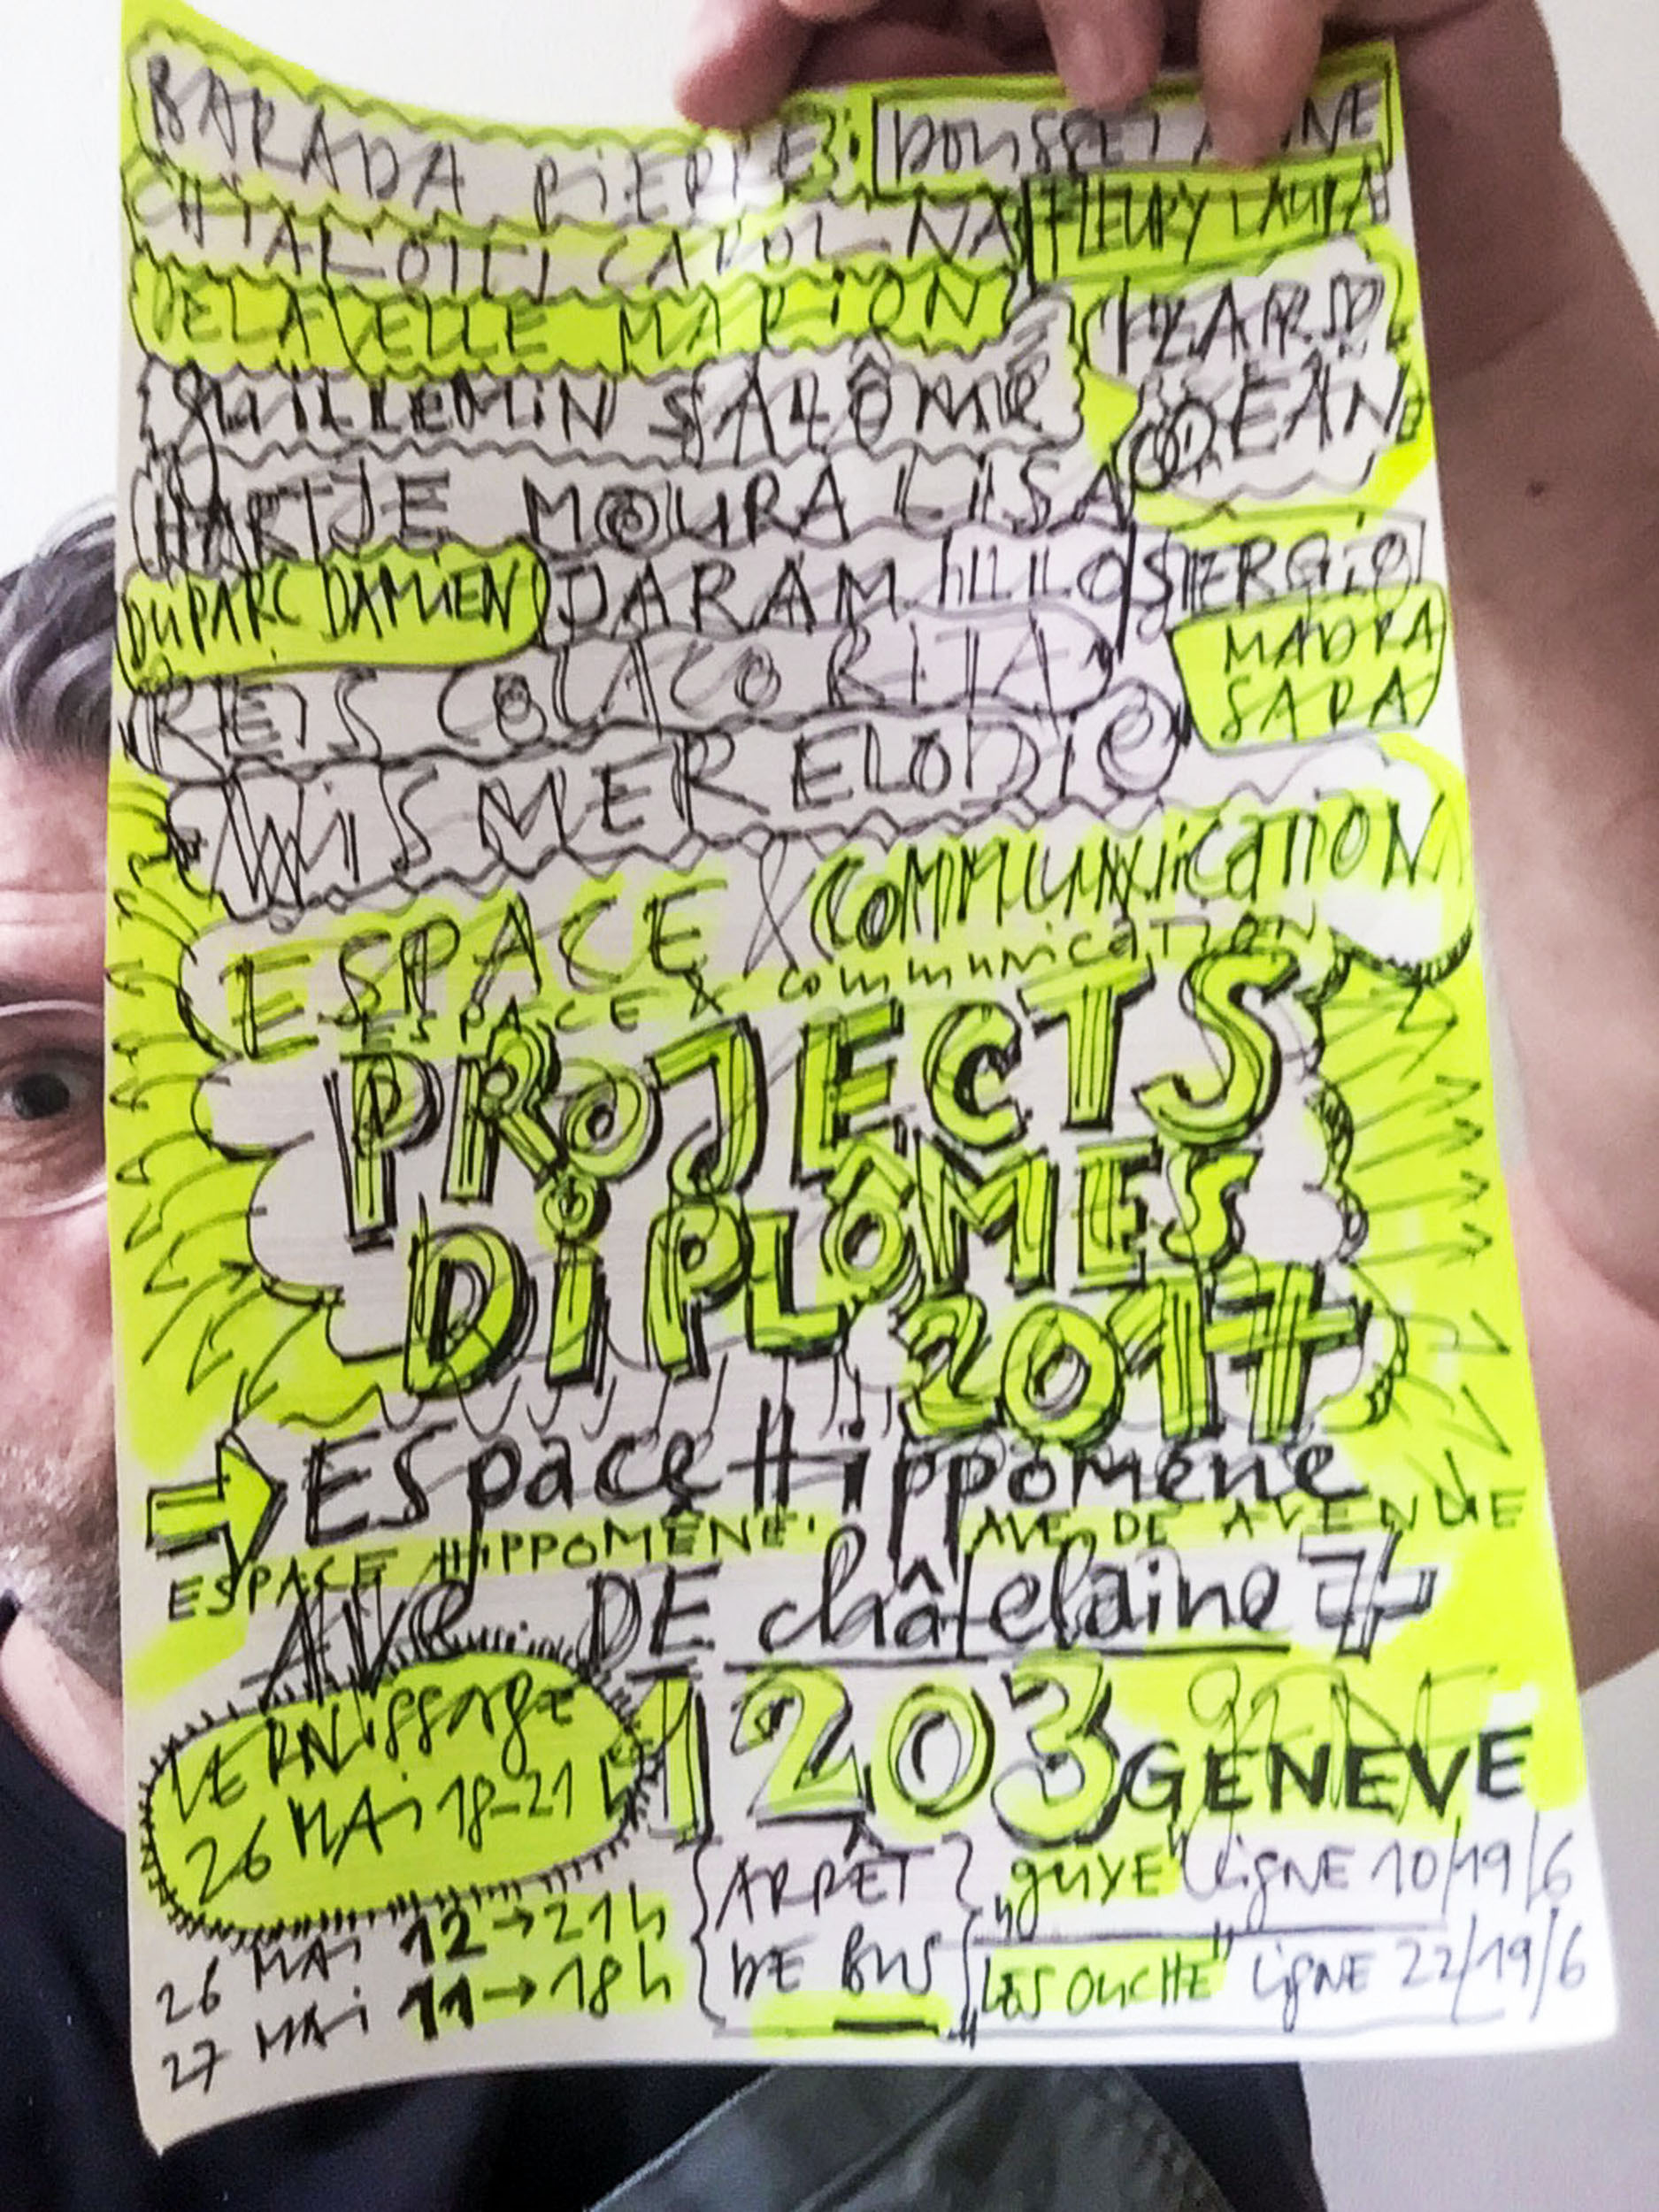 BARADA PiERRE
DOUSSET
CAROLINA
FLEURY LAURA
DELAVELLE MARION
IZARD
OCÉAN
GUILLEMIN SALÔMÉ
HARTJE MOURA LiSA
DUPARC DAMIEN
JARAMILLO SERGiO
MADRA
SARA
REIS COLACO RITA
WiSMER ELODIE
ESPACE & COMMUNiCATION
ESPACE & communicATION
PROJECTS
DiPLÔMES
2017
Espace Hippomène
ESPACE HiPPOMÈNE AVE DE AVENUE
AVE. DE châtelaine 7
VERNissage
26 MAi 18-21 h
1203 GENEVE
26 MAi 12→21h
27 MAi 11→18h
ARRÊT
DE BUS
„GUYE" LigNE 10/19/6
„LES OUCHE" LigNE 22/19/6